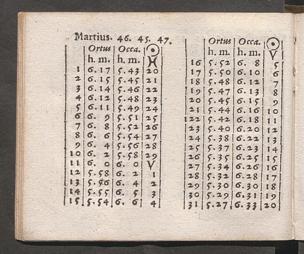 Martius. 46. 45. 47.
Ortus Occa. ☉
h. m. h. m. ♓
1 6.17 5.43 20
2 6.15 5.45 21
3 6.14 5.46 22
4 6.12 5.48 23
5 6.11 5.49 24
6 6. 9 5.51 25
7 6. 8 5.52 26
8 6. 6 5.54 27
9 6. 4 5.56 28
10 6. 2 5.58 29
11 6. 0 6. 0 ♈
12 5.58 6. 2 1
13 5.56 6. 4 2
14 5.55 6. 5 3
15 5.54 6. 6 4
Ortus Occa. ☉
h. m. h. m. ♈
16 5.52 6. 8 5
17 5.50 6.10 6
18 5.48 6.12 7
19 5.47 6.13 8
20 5.45 6.15 9
21 5.44 6.16 10
22 5.42 6.18 11
23 5.40 6.20 12
24 5.38 6.22 13
25 5.37 6.23 14
26 5.35 6.25 15
27 5.34 6.26 16
28 5.32 6.28 17
29 5.30 6.30 18
30 5.29 6.31 19
31 5.27 6.33 20